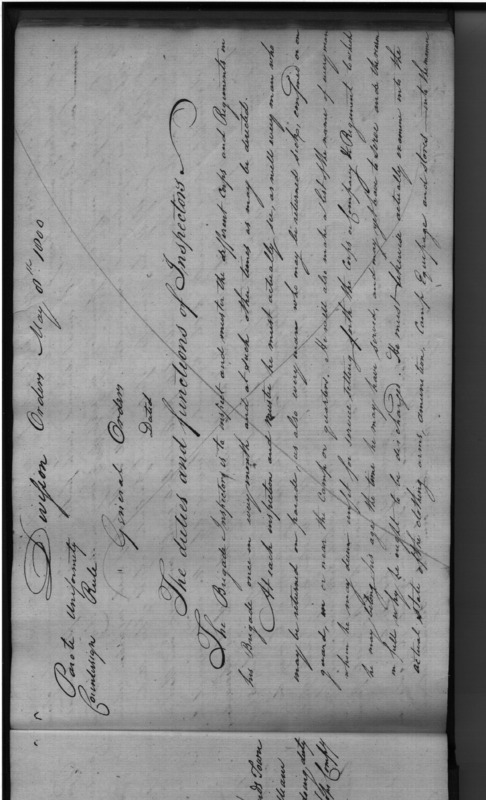 Division Orders May 8th 1800
Parole Uniformity
Countersign Rule
General Orders
Dated
The duties and functions of Inspectors
The Brigade Inspector, is to inspect and muster the different Corps and Regiments in
his Brigade once in every month and at such other times as may be directed.
At each inspection and muster he must actually see, as well every man who
may be returned on parade, as also every man who may be returned sick, confined or on
guard in or near the Camp or quarters. He will also make a list of the names of every man
whom he may deem unfit for service setting forth the Corps & Company & Regiment to which
he may belong his age the time he may have served, and may yet have to serve and the reason
in full why he ought to be discharged. He must likewise actually examine into the
actual state of the clothing arms, ammunition, Camp Equipage and stores into the manner
Town